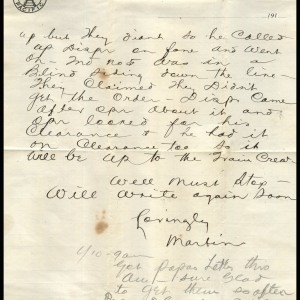 PACIFIC
191
up but They didnt so he Called
up Dispr on fone and Went
oh - and not Was in a
Blind siding down the line -
They Claimed They Didn't
get the Order - Dispr Came
after opr about it and
opr looked for his
Clearance & he had it
on Clearance too so it
Will be up to the Train Crew.
Well Must Stop -
Will write again Soon
Lovingly
Martin
1/10 - 9am
Got Papas letter this
am sure glad
to get them so often